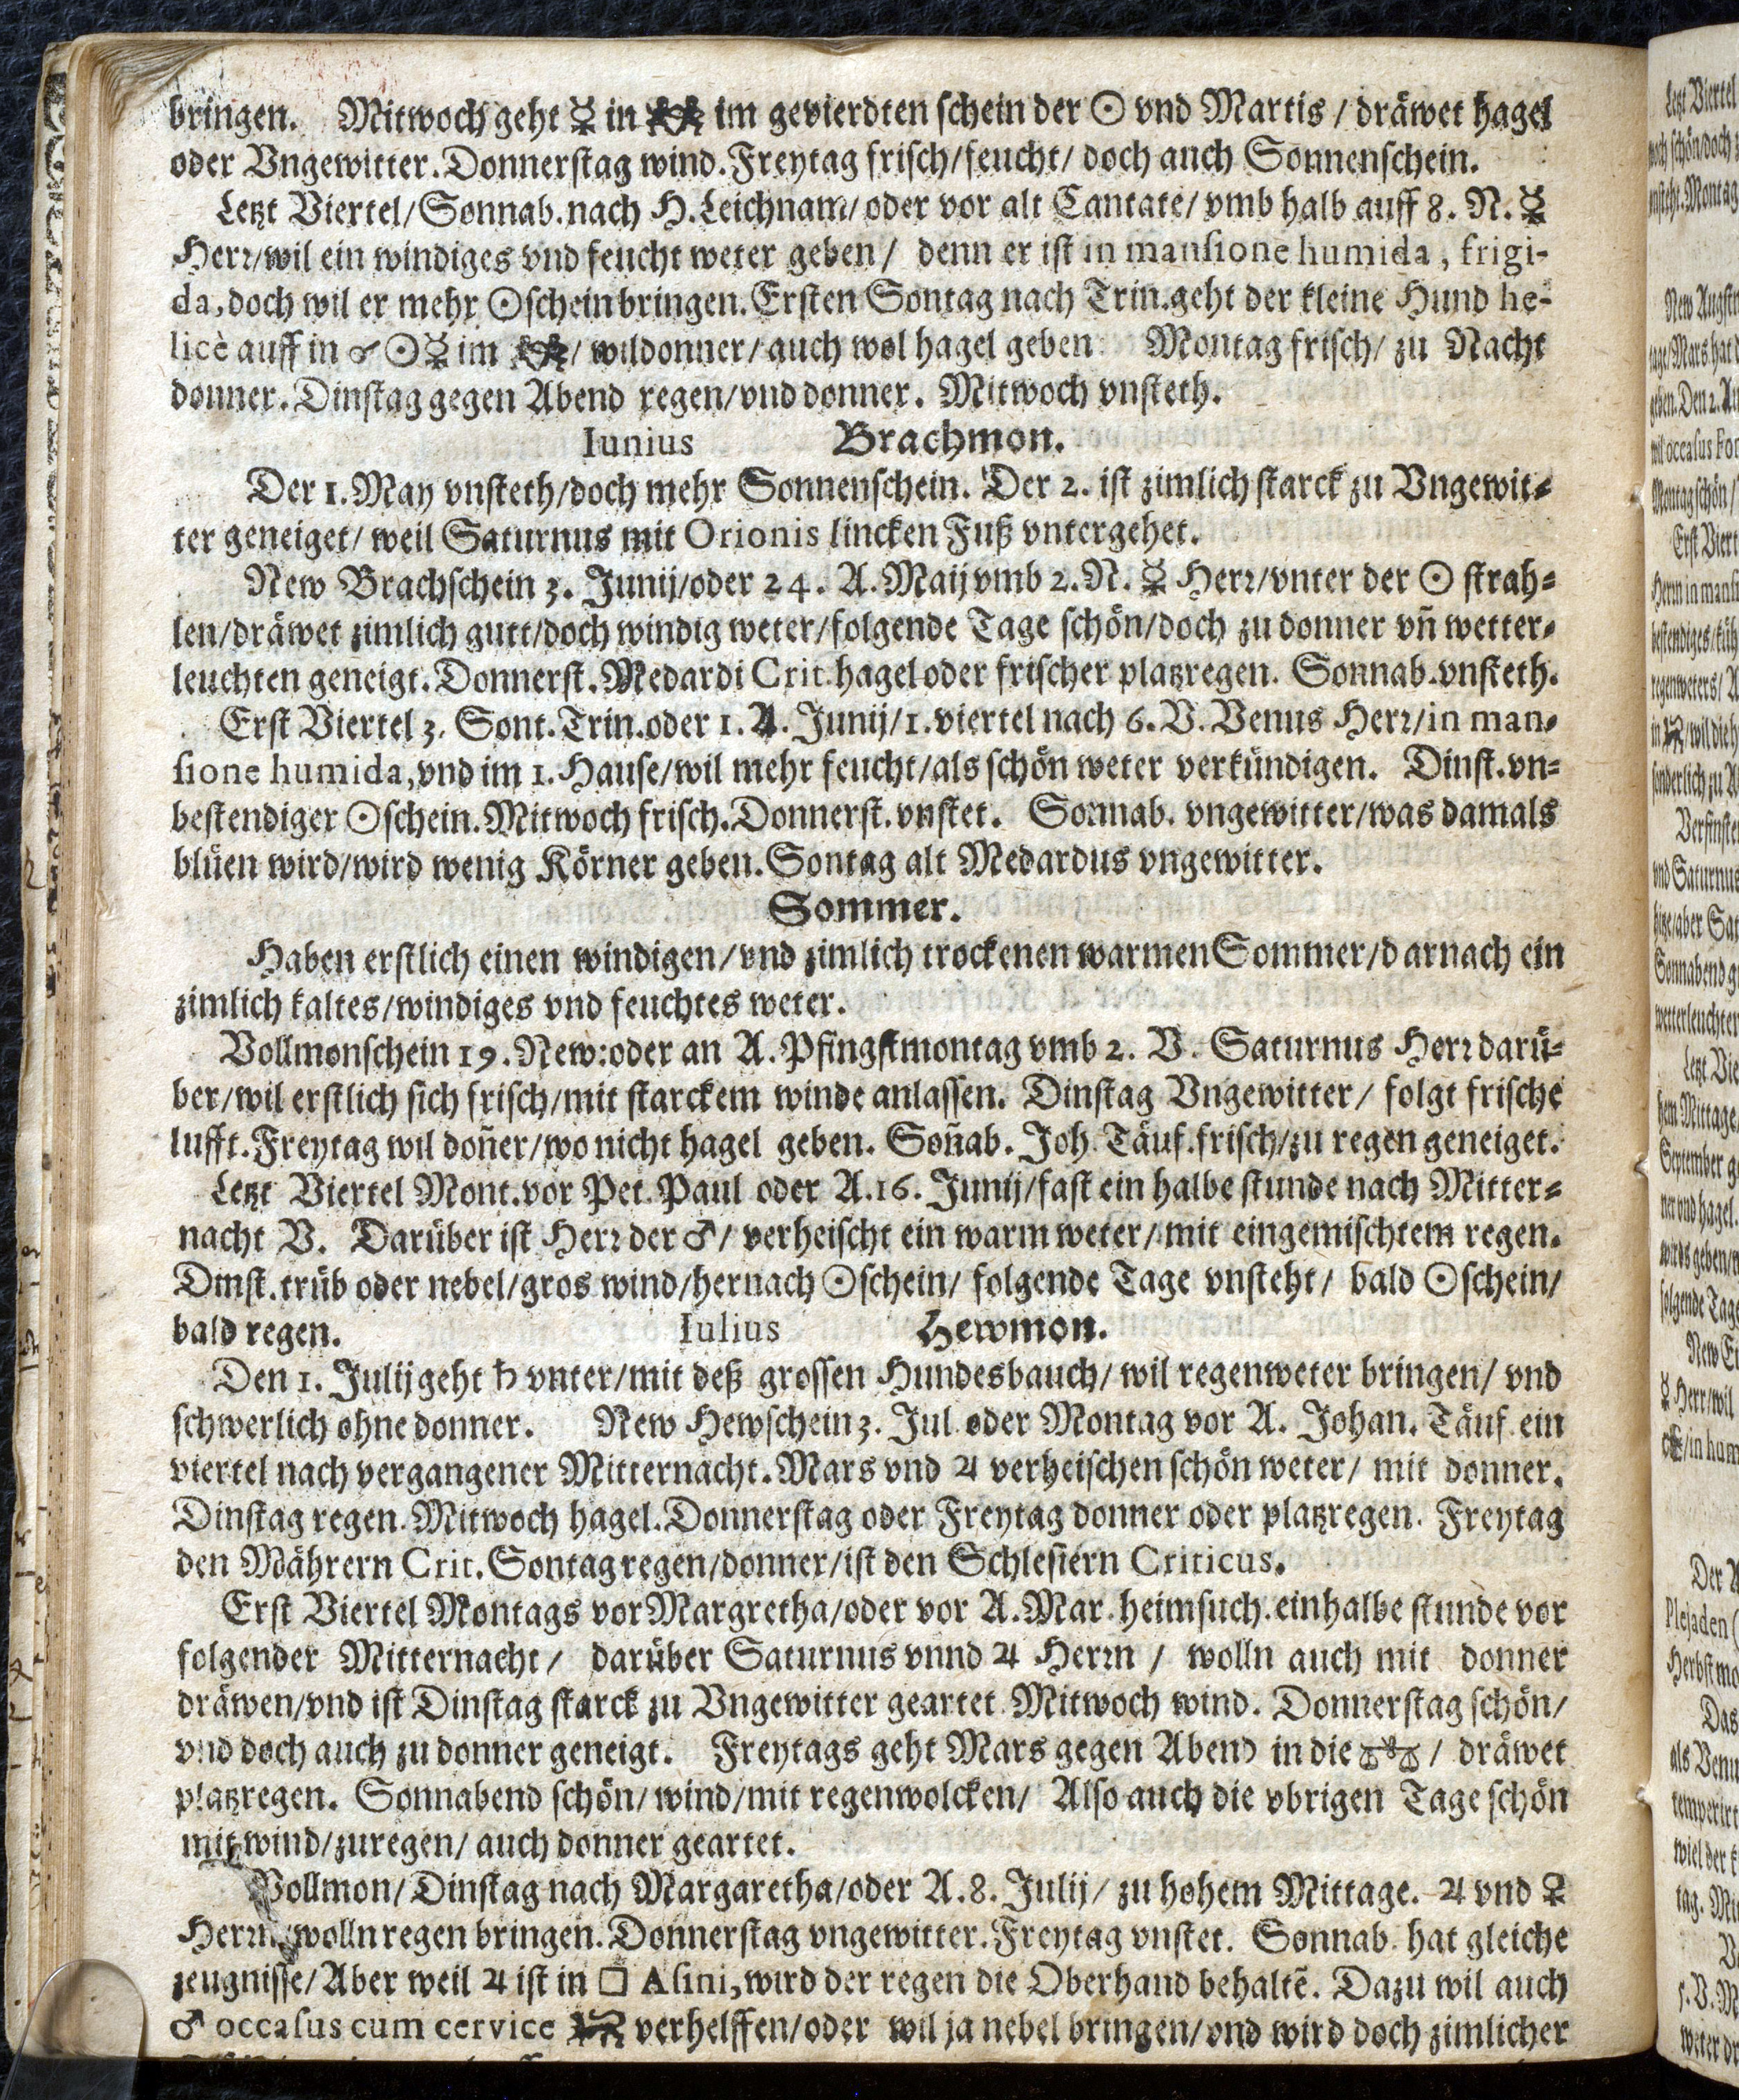 bringen. Mitwoch geht ☿ in ♊ im gevierdten schein der ☉ vnd Martis / dräwet hagel
oder Vngewitter. Donnerstag wind. Freytag frisch/feucht/ doch auch Sonnenschein.
Letzt Viertel/Sonnab. nach H. Leichnam/ oder vor alt Cantate/ vmb halb auff 8. N. ☿
Herr/wil ein windiges vnd feucht weter geben / denn er ist in mansione humida, frigi-
da, doch wil er mehr ☉schein bringen. Ersten Sontag nach Trin. geht der kleine Hund he-
licè auff in ☌ ☉☿ im ♊/ wil donner/ auch wol hagel geben. Montag frisch/ zu Nacht
donner. Dinstag gegen Abend regen/vnd donner. Mitwoch vnsteth.
Iunius Brachmon.
Der 1. May vnsteth/doch mehr Sonnenschein. Der 2. ist zimlich starck zu Vngewit-
ter geneiget/ weil Saturnus mit Orionis lincken Fuß vntergehet.
New Brachschein 3. Junij/oder 24. A. Maij vmb 2. N. ☿ Herr/vnter der ☉ strah-
len/dräwet zimlich gutt/doch windig weter/folgende Tage schön/doch zu donner vñ wetter-
leuchten geneigt. Donnerst. Medardi Crit. hagel oder frischer platzregen. Sonnab. vnsteth.
Erst Viertel 3. Sont. Trin. oder 1. A. Junij/1. viertel nach 6. V. Venus Herr/in man-
sione humida, vnd im 1. Hause/wil mehr feucht/als schön weter verkündigen. Dinst. vn-
bestendiger ☉schein. Mitwoch frisch. Donnerst. vnstet. Sonnab. vngewitter/was damals
blüen wird/wird wenig Körner geben. Sontag alt Medardus vngewitter.
Sommer.
Haben erstlich einen windigen/vnd zimlich trockenen warmen Sommer/darnach ein
zimlich kaltes/windiges vnd feuchtes weter.
Vollmonschein 19. New: oder an A. Pfingstmontag vmb 2. V. Saturnus Herr darü-
ber/wil erstlich sich frisch/mit starckem winde anlassen. Dinstag Vngewitter/ folgt frische
lufft. Freytag wil doñer/wo nicht hagel geben. Soñab. Joh. Täuf. frisch/zu regen geneiget.
Letzt Viertel Mont. vor Pet. Paul oder A. 16. Junij/fast ein halbe stunde nach Mitter-
nacht V. Darüber ist Herr der ♂/ verheischt ein warm weter/ mit eingemischtem regen.
Dinst. trüb oder nebel/gros wind/hernach ☉schein/ folgende Tage vnsteht/ bald ☉schein/
bald regen. Iulius Hewmon.
Den 1. Julij geht ♄ vnter/mit deß grossen Hundesbauch/ wil regenweter bringen/ vnd
schwerlich ohne donner. New Hewschein 3. Jul. oder Montag vor A. Johan. Täuf. ein
viertel nach vergangener Mitternacht. Mars vnd ♃ verheischen schön weter/ mit donner.
Dinstag regen. Mitwoch hagel. Donnerstag oder Freytag donner oder platzregen. Freytag
den Mährern Crit. Sontag regen/donner/ist den Schlesiern Criticus.
Erst Viertel Montags vor Margretha/oder vor A. Mar. heimsuch. ein halbe stunde vor
folgender Mitternacht / darüber Saturnus vnnd ♃ Herrn / wolln auch mit donner
dräwen/vnd ist Dinstag starck zu Vngewitter geartet. Mitwoch wind. Donnerstag schön/
vnd doch auch zu donner geneigt. Freytags geht Mars gegen Abend in die ♎ / dräwet
platzregen. Sonnabend schön/ wind/mit regenwolcken/ Also auch die vbrigen Tage schön
mit wind/zu regen/ auch donner geartet.
Vollmon/ Dinstag nach Margaretha/oder A. 8. Julij/ zu hohem Mittage. ♃ vnd ♀
Herrn wolln regen bringen. Donnerstag vngewitter. Freytag vnstet. Sonnab. hat gleiche
zeugnisse/ Aber weil ♃ ist in □ Asini, wird der regen die Oberhand behaltē. Dazu wil auch
♂ occasus cum cervice verhelffen/oder wil ja nebel bringen/vnd wird doch zimlicher